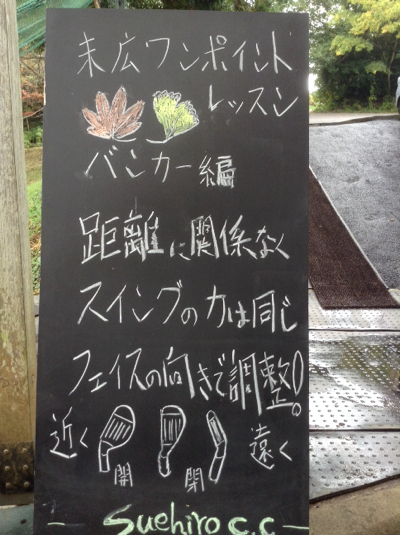 末広ワンポイント
レッスン
バンカー編
距離に関係なく
スイングの力は同じ
フェイスの向きで調整!
近く 遠く
開 閉
Suehiro c.c